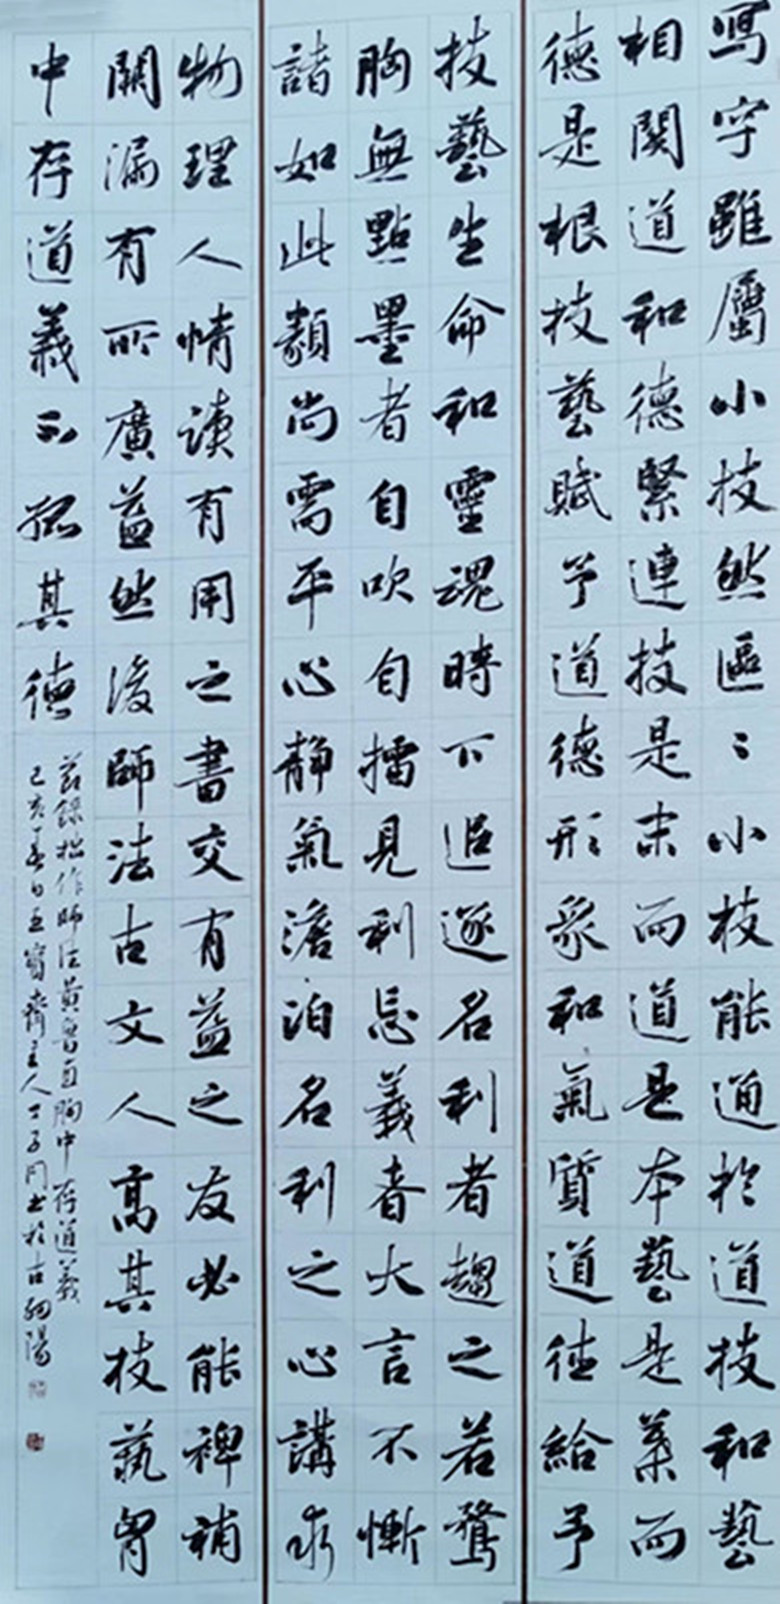 寫字雖屬小技然區〻小技能通於道技和藝
相関道和德緊連技是末而道是本藝是葉而
德是根技藝賦予道德形象和氣質道德給予
技藝生命和靈魂時下追逐名利者趨之若鶩
胸無點墨者自吹自擂見利忘義者大言不慚
諸如此類尚需平心静氣澹泊名利之心講求
物理人情读有用之書交有益之友必能裨補
闕漏有所廣益然後師法古文人高其技藝胷
中存道義而不孤其德
節錄拙作師法黄魯直胸中存道義
己亥丁春日五寳齋主人丁子同书於古細陽